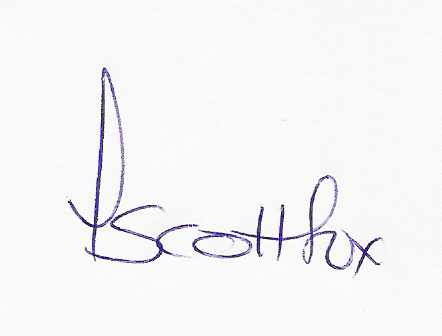 Scott Fox